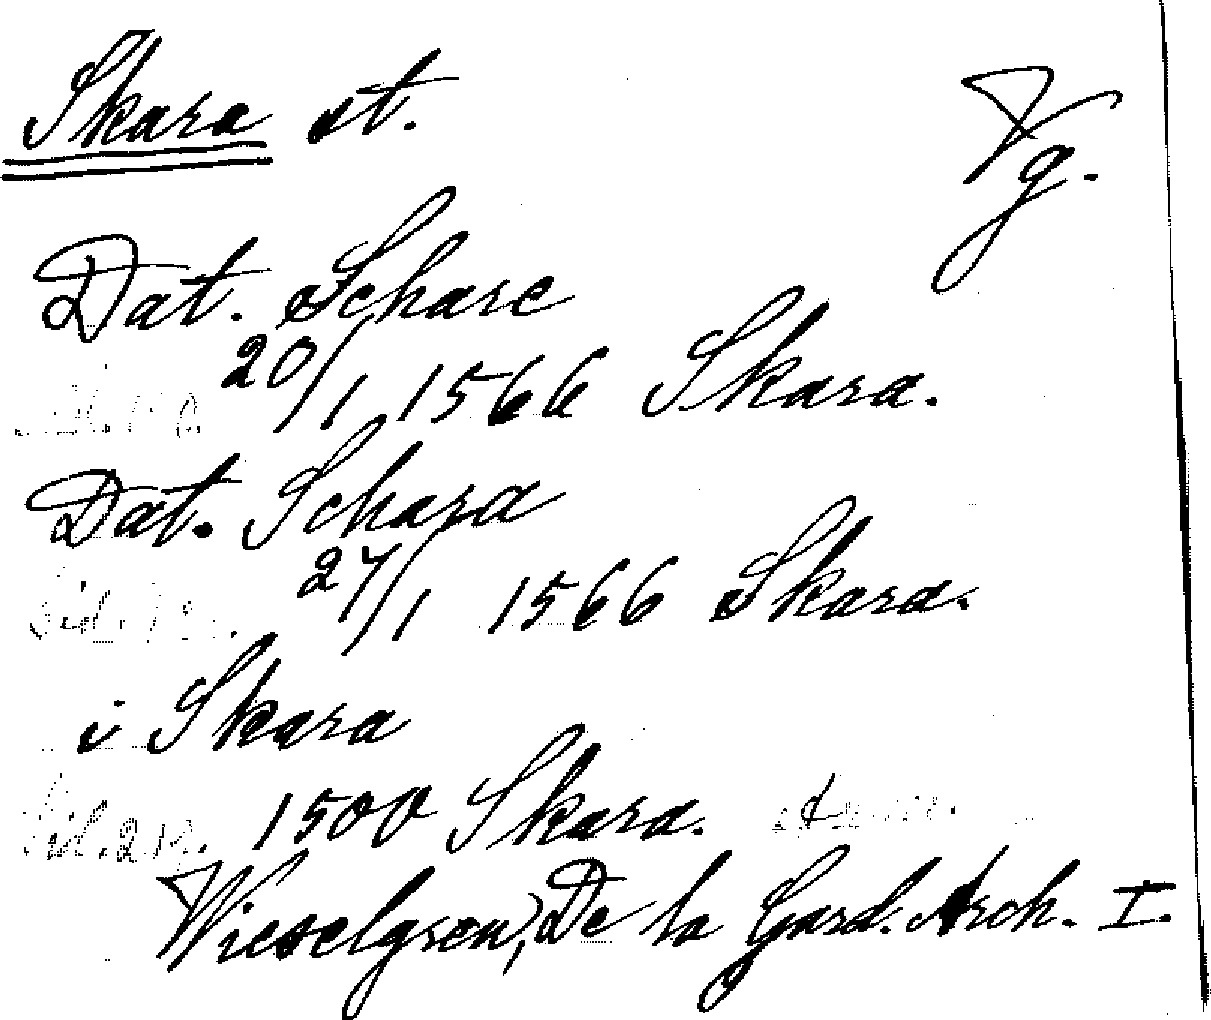 Skara st. Vg.
Dat. Schare
20/1 1566 Skara.
Dat. Schara
27/1 1566 Skara.
i Skara
1500 Skara.
Wieselgren, De la Gard. Arch. I.